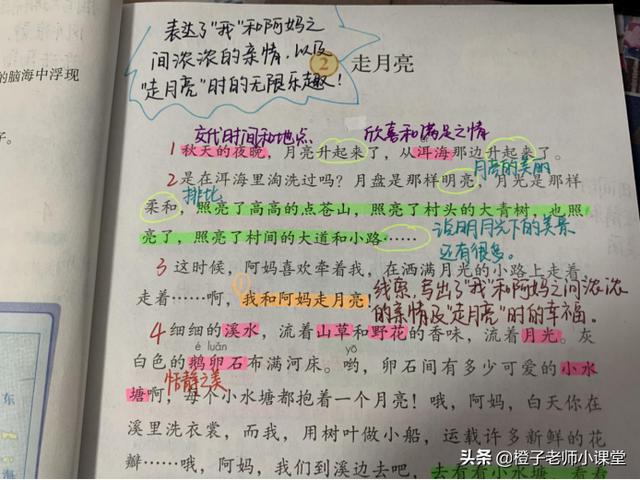 表达了"我"和阿妈之
间浓浓的亲情,以及
"走月亮"时的无限乐趣!
的脑海中浮现
子。
2 走月亮
交代时间和地点 欣喜和满足之情
1 秋天的夜晚,月亮升起来了,从洱海那边升起来了。
月亮的美丽
2 是在洱海里淘洗过吗?月盘是那样明亮,月光是那样
排比
柔和,照亮了高高的点苍山,照亮了村头的大青树,也照
亮了,照亮了村间的大道和小路……
说明月光下的美景
还有很多。
3 这时候,阿妈喜欢牵着我,在洒满月光的小路上走着,
走着……啊,①我和阿妈走月亮!
线索,写出了"我"和阿妈之间浓浓
的亲情及"走月亮"时的幸福。
4 细细的溪水,流着山草和野花的香味,流着月光。灰
é luǎn yō
白色的鹅卵石布满河床。哟,卵石间有多少可爱的小水
恬静之美
塘啊,每个小水塘都抱着一个月亮!哦,阿妈,白天你在
溪里洗衣裳,而我,用树叶做小船,运载许多新鲜的花
瓣……哦,阿妈,我们到溪边去吧,去看看小水塘,看看
东
海
头条 @橙子老师小课堂